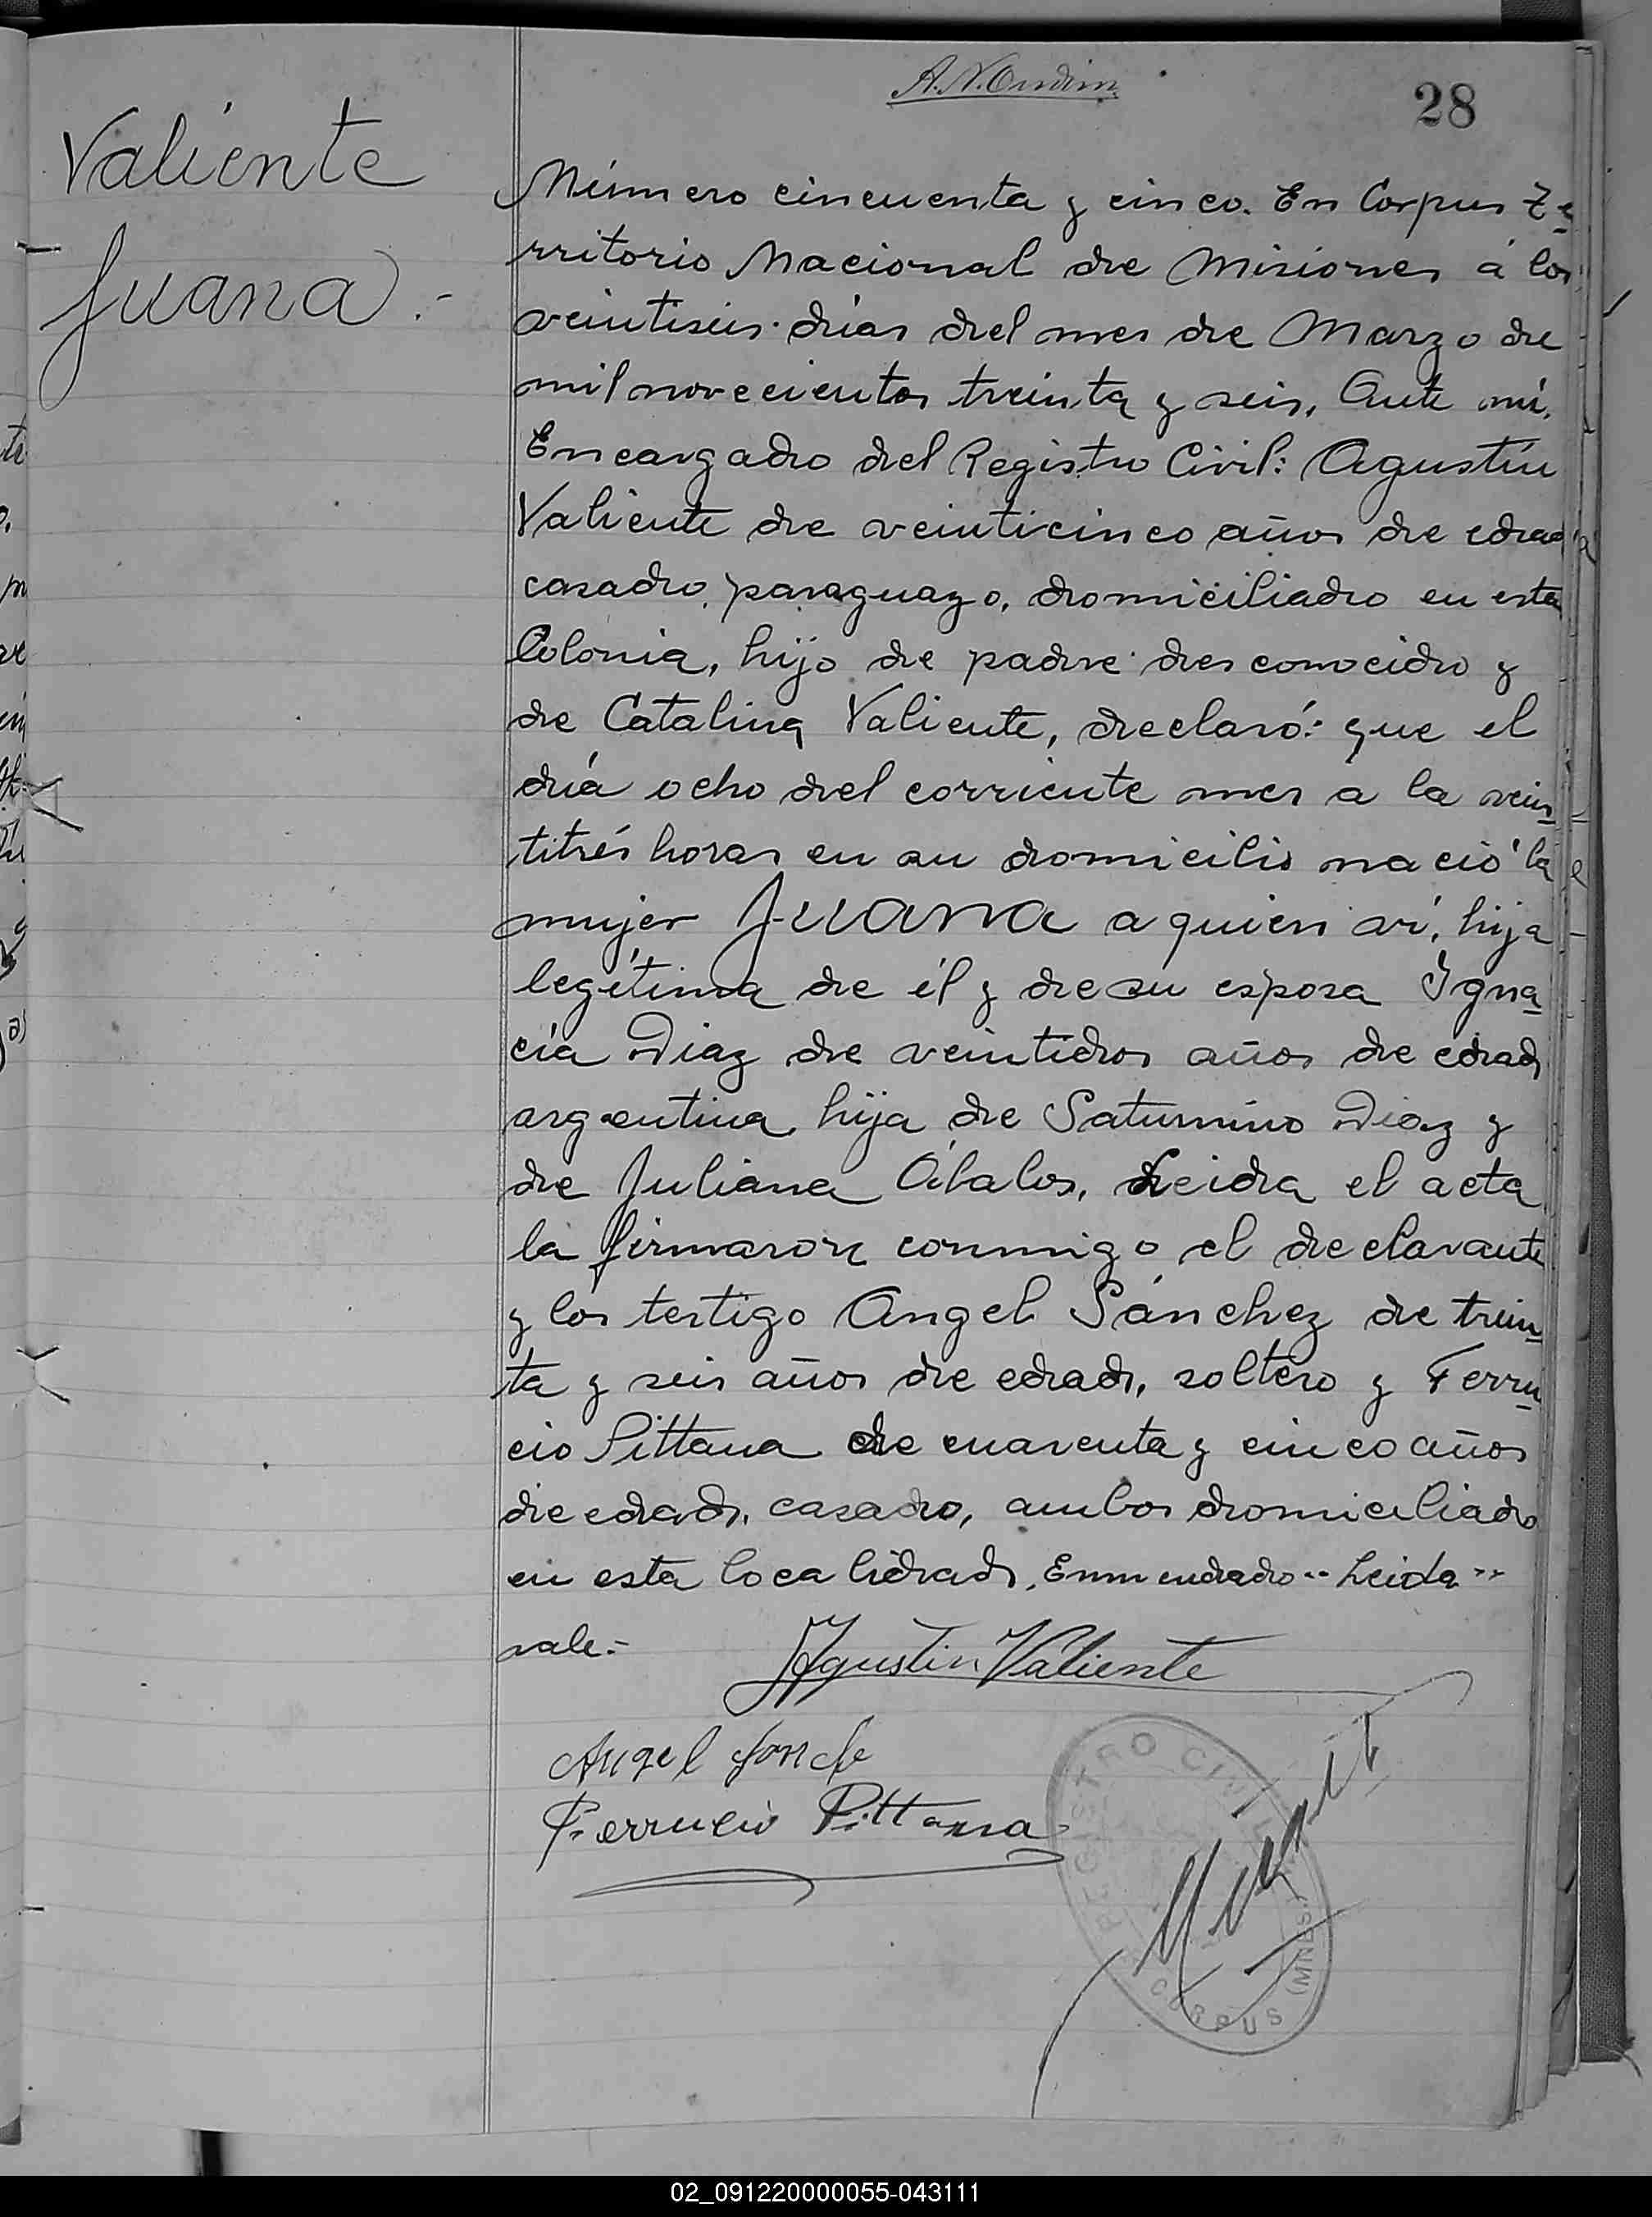 28
Valiente
Juana.-
Número cincuenta y cinco. En Corpus Te
rritorio Nacional de Misiones á los
veintiseis dias del mes de Marzo de
mil novecientos treinta y seis, Ante mí,
Encargado del Registro Civil: Agustín
Valiente de veinticinco años de edad
casado, paraguayo, domiciliado en esta
Colonia, hijo de padre desconocido y
de Catalina Valiente, declaró: que el
día ocho del corriente mes a la vein
titrés horas en su domicilio nació la
mujer Juana a quien ví, hija
legítima de él y de su esposa Igna
cia Diaz de veintidos años de edad
argentina, hija de Saturnino Diaz y
de Juliana Abalos, Leida el acta
la firmaron conmigo el declarante
y los testigo Angel Sánchez de trein
ta y seis años de edad, soltero y Ferru
cio Pittana de cuarenta y cinco años
de edad, casado, ambos domiciliado
en esta localidad. Enmendado "Leida"
vale.-
Agustin Valiente
Angel
Ferrucio Pittana
REGISTRO CIVIL
CORPUS (MNES.)
02_091220000055-043111